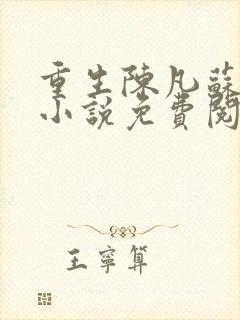 重生陳凡蘇
小說免費閱
王寧算